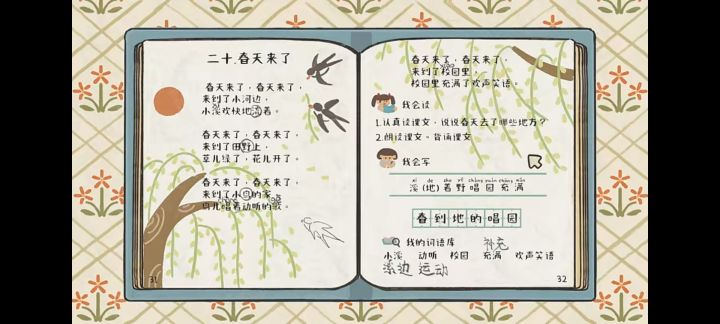 二十.春天来了
春天来了，春天来了，
来到了小河边，
小溪欢快地流着。
春天来了，春天来了，
来到了田野上，
草儿绿了，花儿开了。
春天来了，春天来了，
来到了小鸟的家，
鸟儿唱着动听的歌。
31
春天来了，春天来了，
来到了校园里，
校园里充满了欢声笑语。
我会读
1.认真读课文，说说春天去了哪些地方？
2.朗读课文。背诵课文
我会写
xī de zhe yě chàng yuán chōng mǎn
溪（地）着野唱园充满
春到地的唱园
我的词语库 补充
小溪 动听 校园 充满 欢声笑语
溪边 运动
32